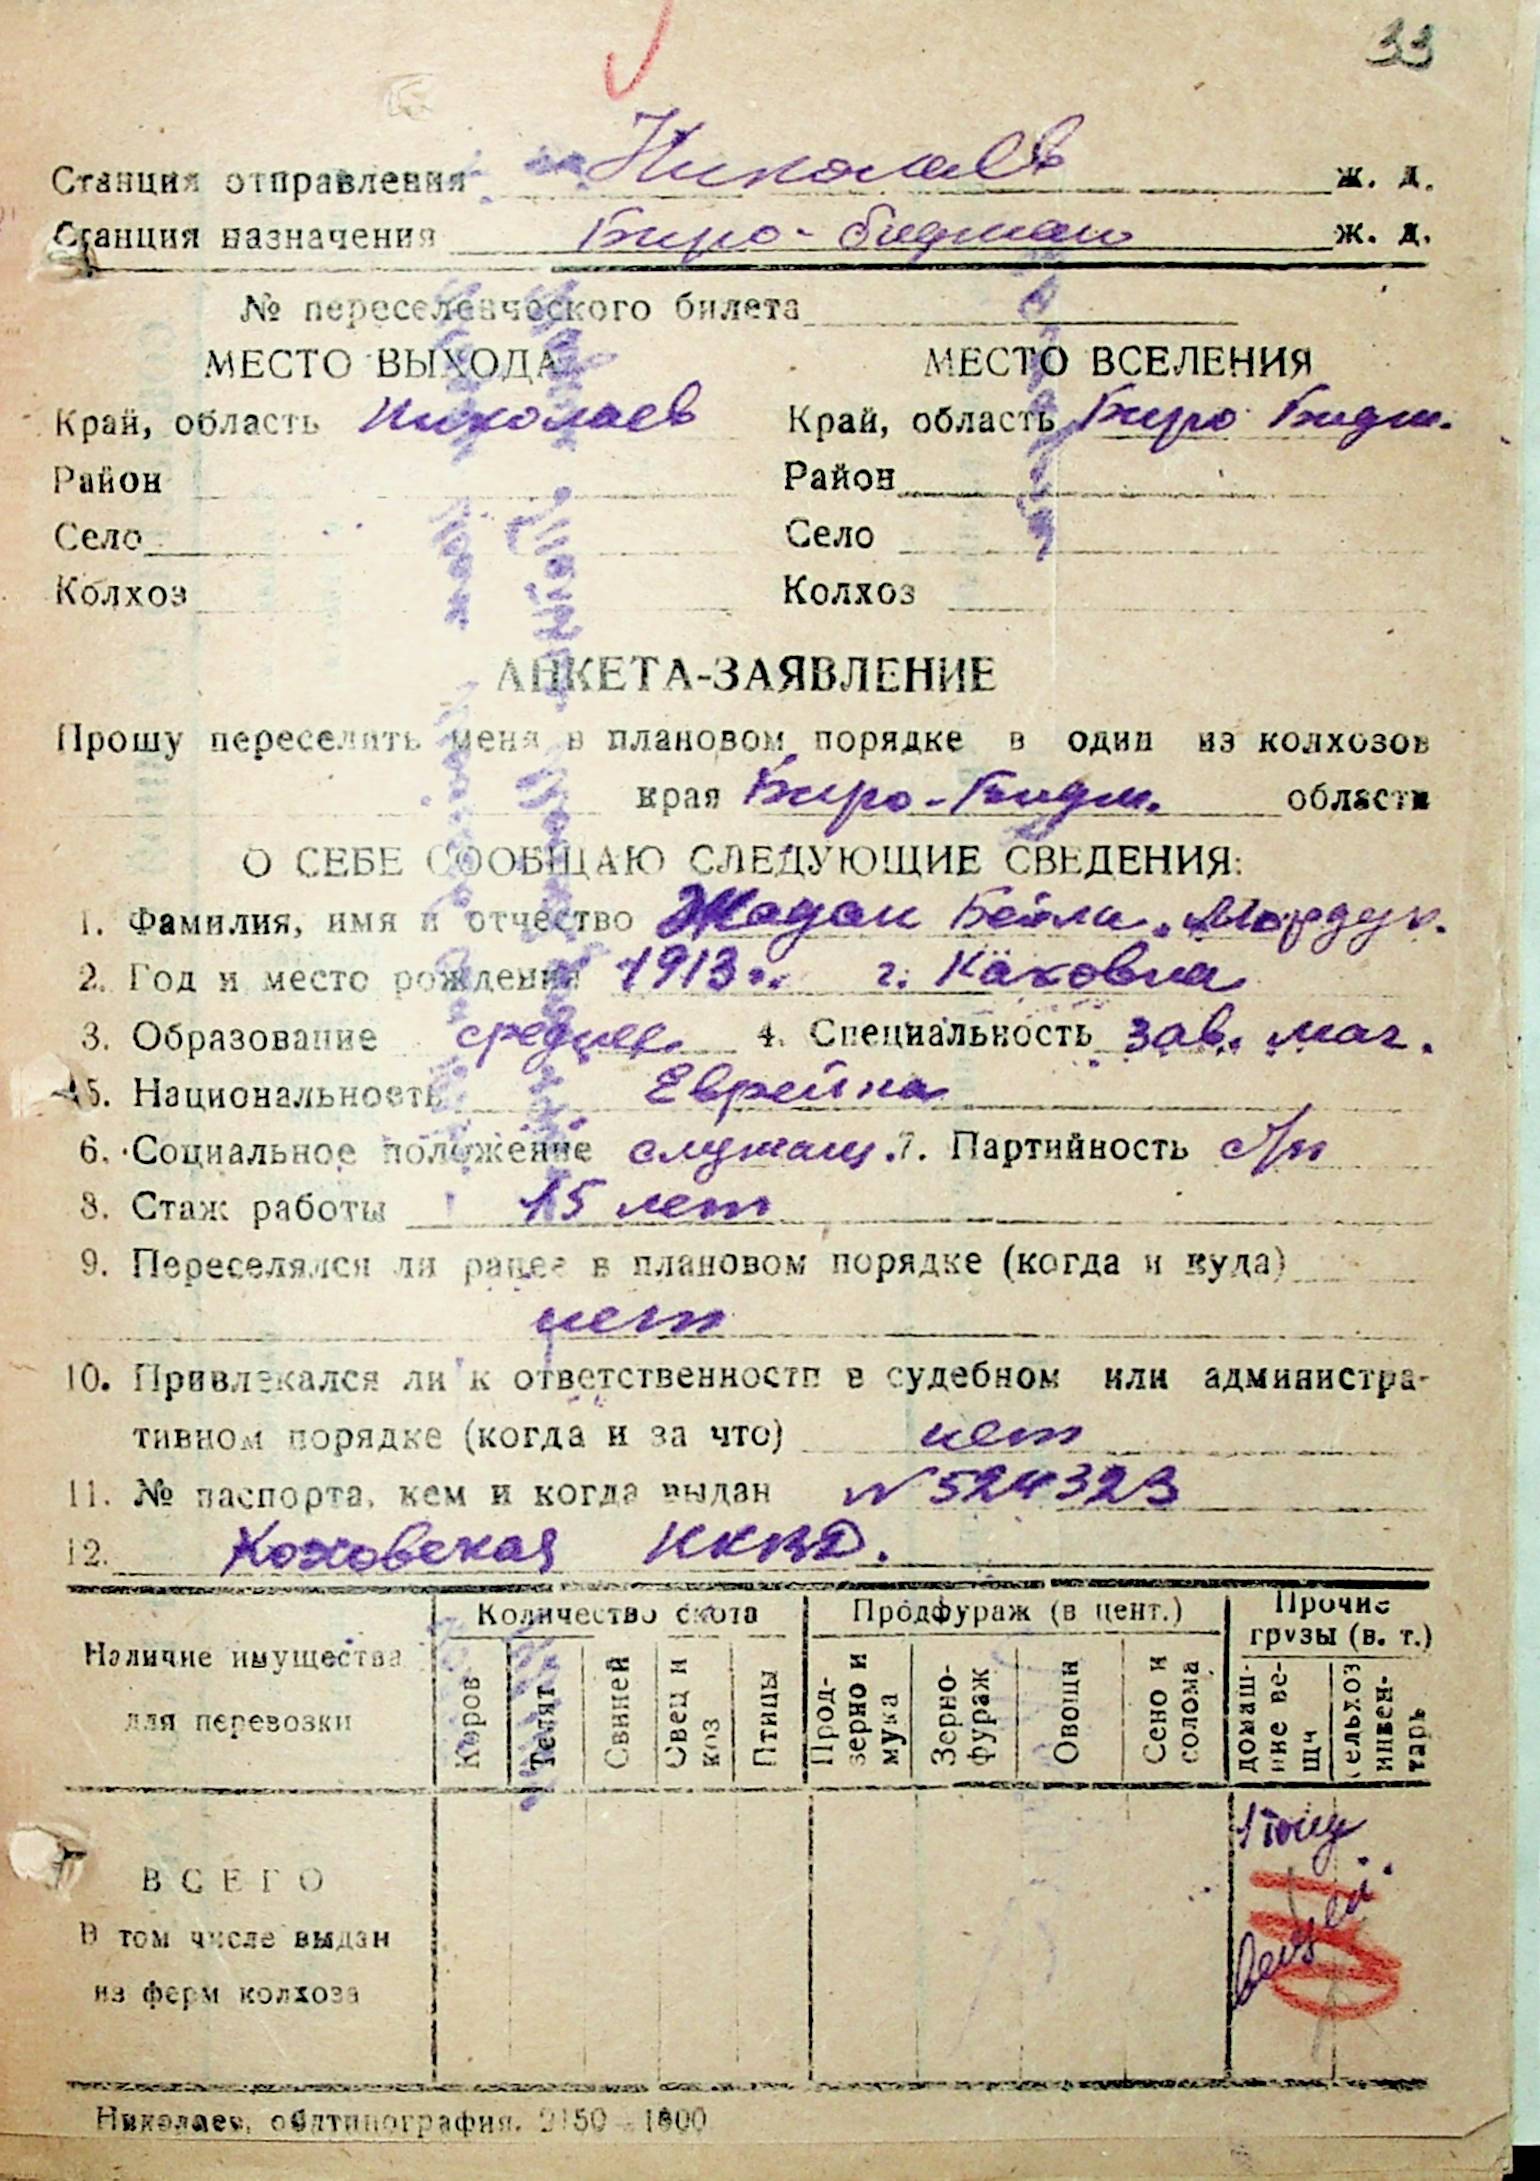 33
Станция отправления Николаев ж. д.
Станция назначения Биро-биджан ж. д.
№ переселенческого билета
МЕСТО ВЫХОДА МЕСТО ВСЕЛЕНИЯ
Край, область Николаев Край, область Биро Бидж.
Район Район
Село Село
Колхоз Колхоз
АНКЕТА-ЗАЯВЛЕНИЕ
Прошу переселить меня в плановом порядке в один из колхозов
края Биро-Бидж. области
О СЕБЕ СООБЩАЮ СЛЕДУЮЩИЕ СВЕДЕНИЯ:
1. Фамилия, имя и отчество Жадан Бейла Мордух.
2. Год и место рождения 1913 г. г. Каховка
3. Образование среднее 4. Специальность зав. маг.
5. Национальность Еврейка
6. Социальное положение служащ. 7. Партийность
8. Стаж работы 15 лет
9. Переселялся ли ранее в плановом порядке (когда и куда)
нет
10. Привлекался ли к ответственности в судебном или администра-
тивном порядке (когда и за что) нет
11. № паспорта, кем и когда выдан N 524323
12. Коховская НКВД.
Наличие имущества для перевозки
Количество скота
Продфураж (в цент.)
Прочие грузы (в. т.)
Коров
Телят
Свиней
Овец и коз
Птицы
Прод-зерно и мука
Зерно-фураж
Овощи
Сено и солома
домаш-ние ве-щи
сельхоз инвен-тарь
ВСЕГО
1 тону
вещей
В том числе выдан
из ферм колхоза
Николаев, облтипография. 2150—1800